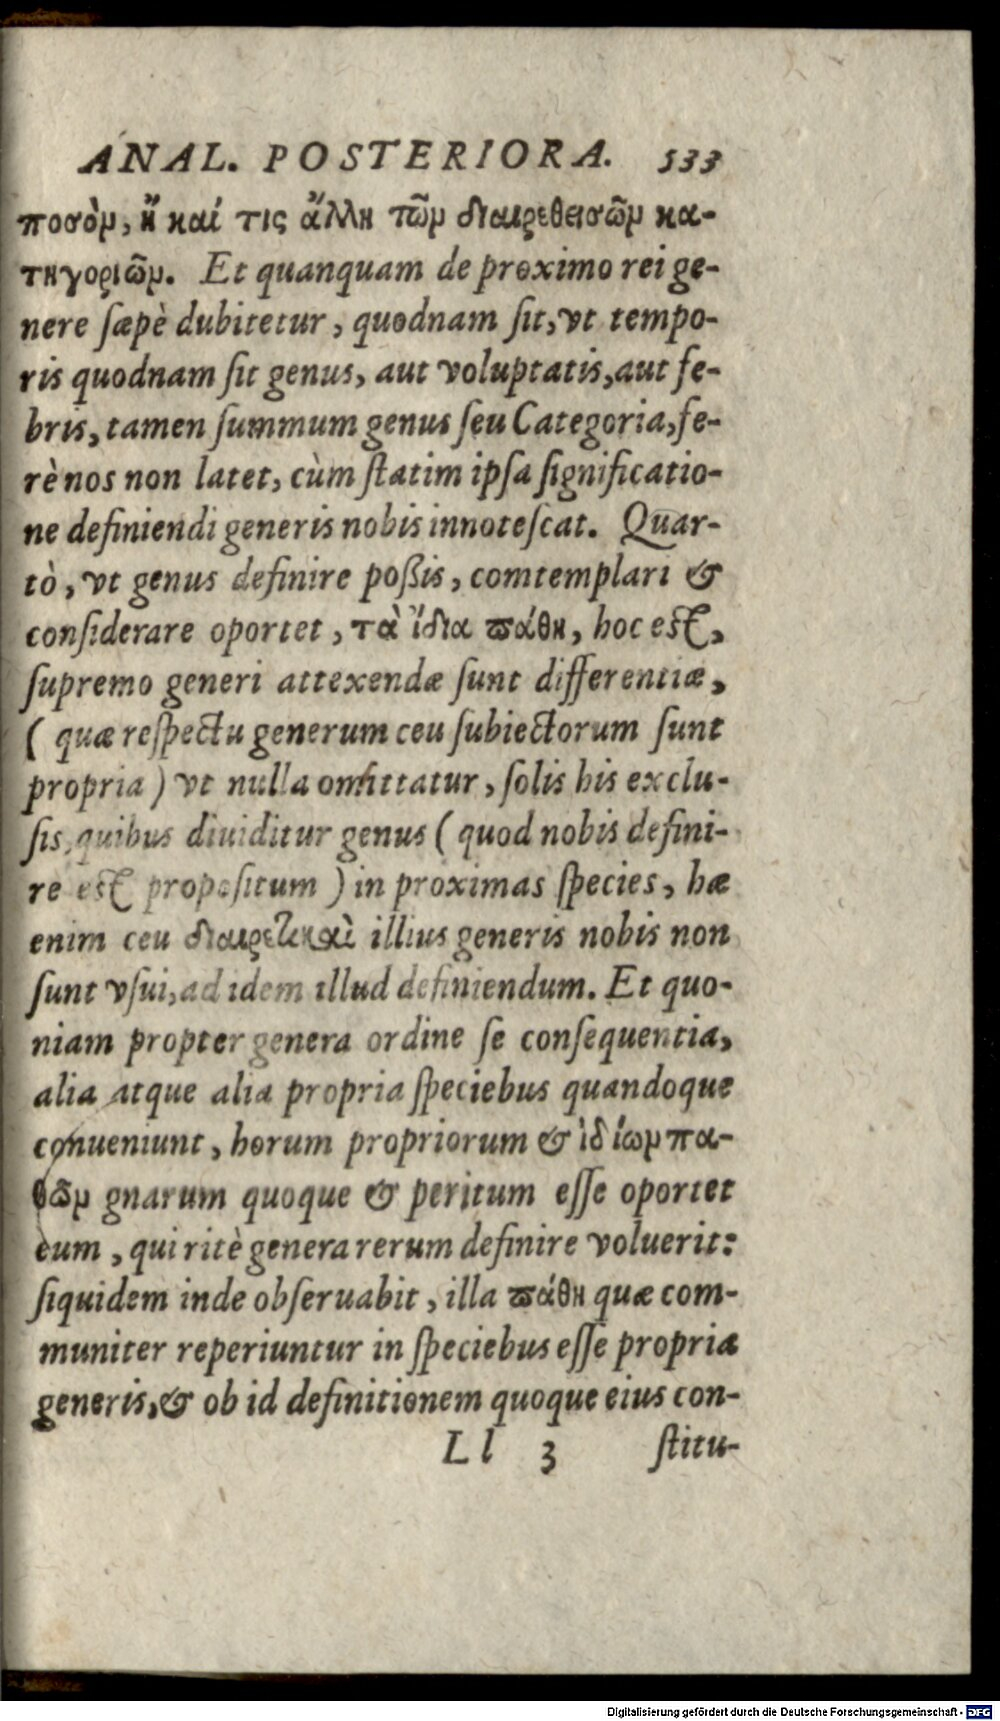 ANAL. POSTERIORA. 533
ποσὸν, ἢ καί τις ἄλλη τῶν διαιρεθεισῶν κα-
τηγοριῶν. Et quanquam de proximo rei ge-
nere sæpè dubitetur, quodnam sit, vt tempo-
ris quodnam sit genus, aut voluptatis, aut fe-
bris, tamen summum genus seu Categoria, fe-
rè nos non latet, cùm statim ipsa significatio-
ne definiendi generis nobis innotescat. Quar-
tò, vt genus definire poßis, comtemplari &
considerare oportet, τὰ ἴδια πάθη, hoc est,
supremo generi attexendæ sunt differentiæ,
( quæ respectu generum ceu subiectorum sunt
propria ) vt nulla omittatur, solis his exclu-
sis, quibus diuiditur genus ( quod nobis defini-
re est propositum ) in proximas species, hæ
enim ceu διαιρετικαὶ illius generis nobis non
sunt vsui, ad idem illud definiendum. Et quo-
niam propter genera ordine se consequentia,
alia atque alia propria speciebus quandoque
conueniunt, horum propriorum & ἰδίων πα-
θῶν gnarum quoque & peritum esse oportet
eum, qui ritè genera rerum definire voluerit:
siquidem inde obseruabit, illa πάθη quæ com-
muniter reperiuntur in speciebus esse propria
generis, & ob id definitionem quoque eius con-
Ll 3 stitu-
Digitalisierung gefördert durch die Deutsche Forschungsgemeinschaft - DFG